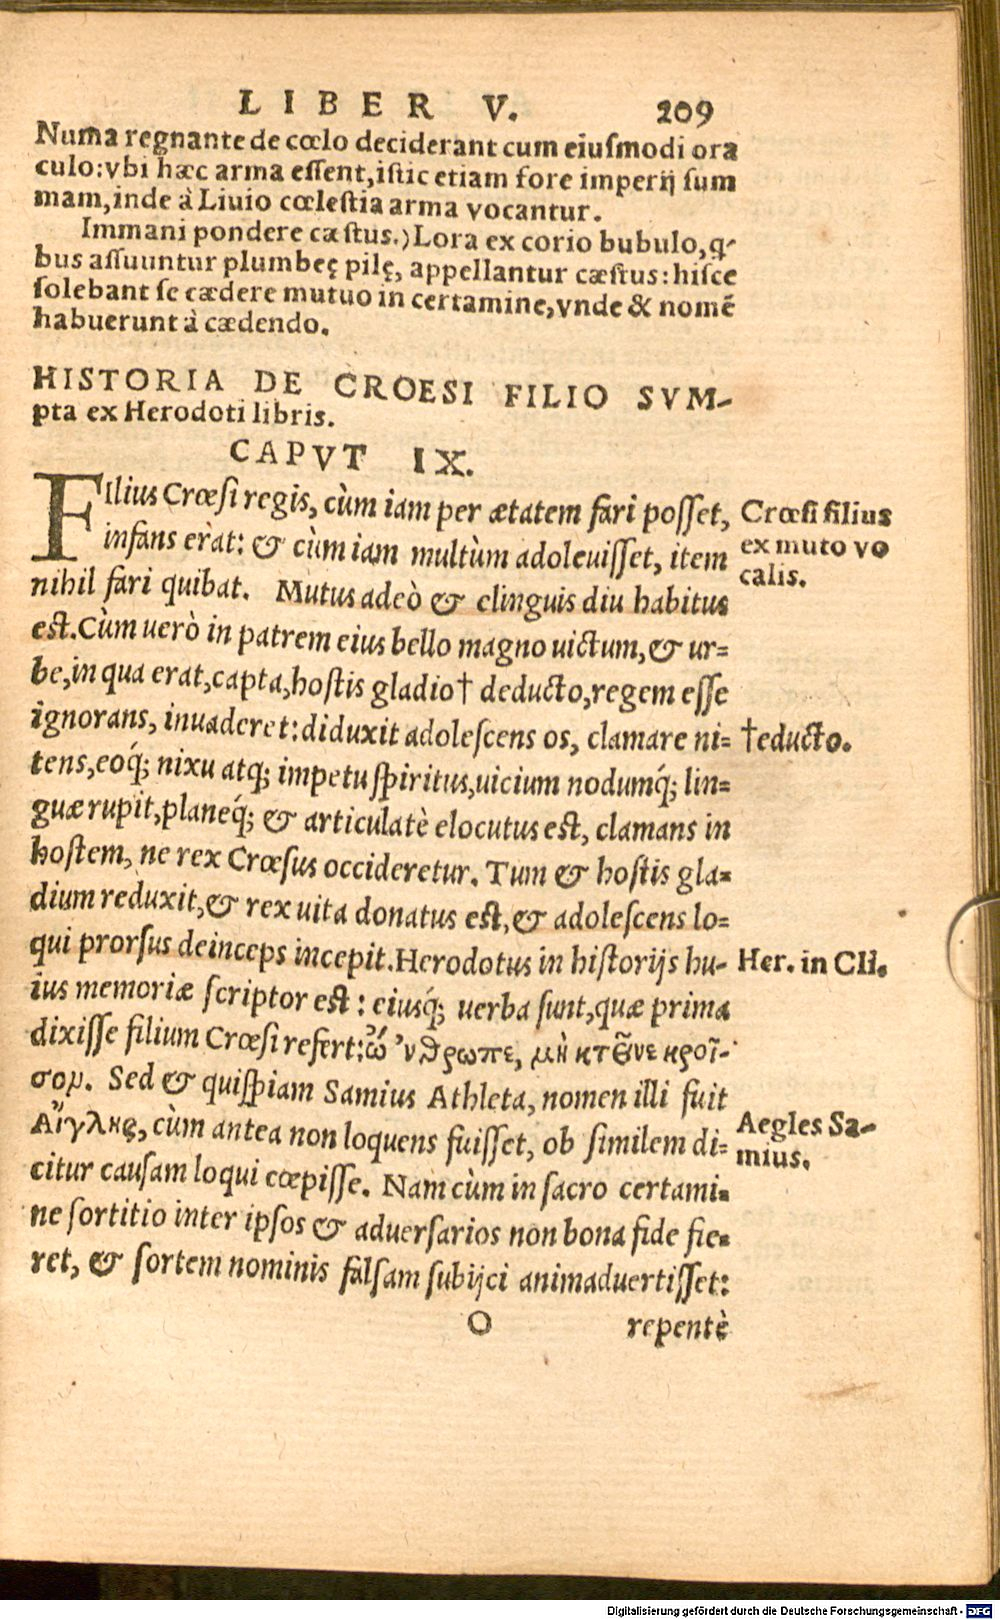 LIBER V. 209
Numa regnante de cœlo deciderant cum eiusmodi ora
culo: vbi hæc arma essent, istic etiam fore imperij sum
mam, inde à Liuio cœlestia arma vocantur.
Immani pondere cæstus.) Lora ex corio bubulo, q-
bus assuuntur plumbeę pilę, appellantur cæstus: hisce
solebant se cædere mutuo in certamine, vnde & nomẽ
habuerunt à cædendo.
HISTORIA DE CROESI FILIO SVM-
pta ex Herodoti libris.
CAPVT IX.
FIlius Crœsi regis, cùm iam per ætatem fari posset,
infans erat: & cùm iam multùm adoleuisset, item
nihil fari quibat. Mutus adeò & elinguis diu habitus
est. Cùm uerò in patrem eius bello magno uictum, & ur=
be, in qua erat, capta, hostis gladio† deducto, regem esse
ignorans, inuaderet: diduxit adolescens os, clamare ni=
tens, eoq́; nixu atq; impetu spiritus, uicium nodumq́; lin=
guæ rupit, planeq́; & articulatè elocutus est, clamans in
hostem, ne rex Crœsus occideretur. Tum & hostis gla=
dium reduxit, & rex uita donatus est, & adolescens lo=
qui prorsus deinceps incepit. Herodotus in historijs hu-
ius memoriæ scriptor est: eiusq́; uerba sunt, quæ prima
dixisse filium Crœsi refert: ὤ 'νθρωπε, μὴ κτεῖνε κροῖ-
σον. Sed & quispiam Samius Athleta, nomen illi fuit
Αἴγλης, cùm antea non loquens fuisset, ob similem di=
citur causam loqui cœpisse. Nam cùm in sacro certami=
ne sortitio inter ipsos & aduersarios non bona fide fie=
ret, & sortem nominis falsam subijci animaduertisset:
O repentè
Crœsi filius
ex muto vo
calis.
†educto.
Her. in Cli.
Aegles Sa-
mius.
Digitalisierung gefördert durch die Deutsche Forschungsgemeinschaft - DFG